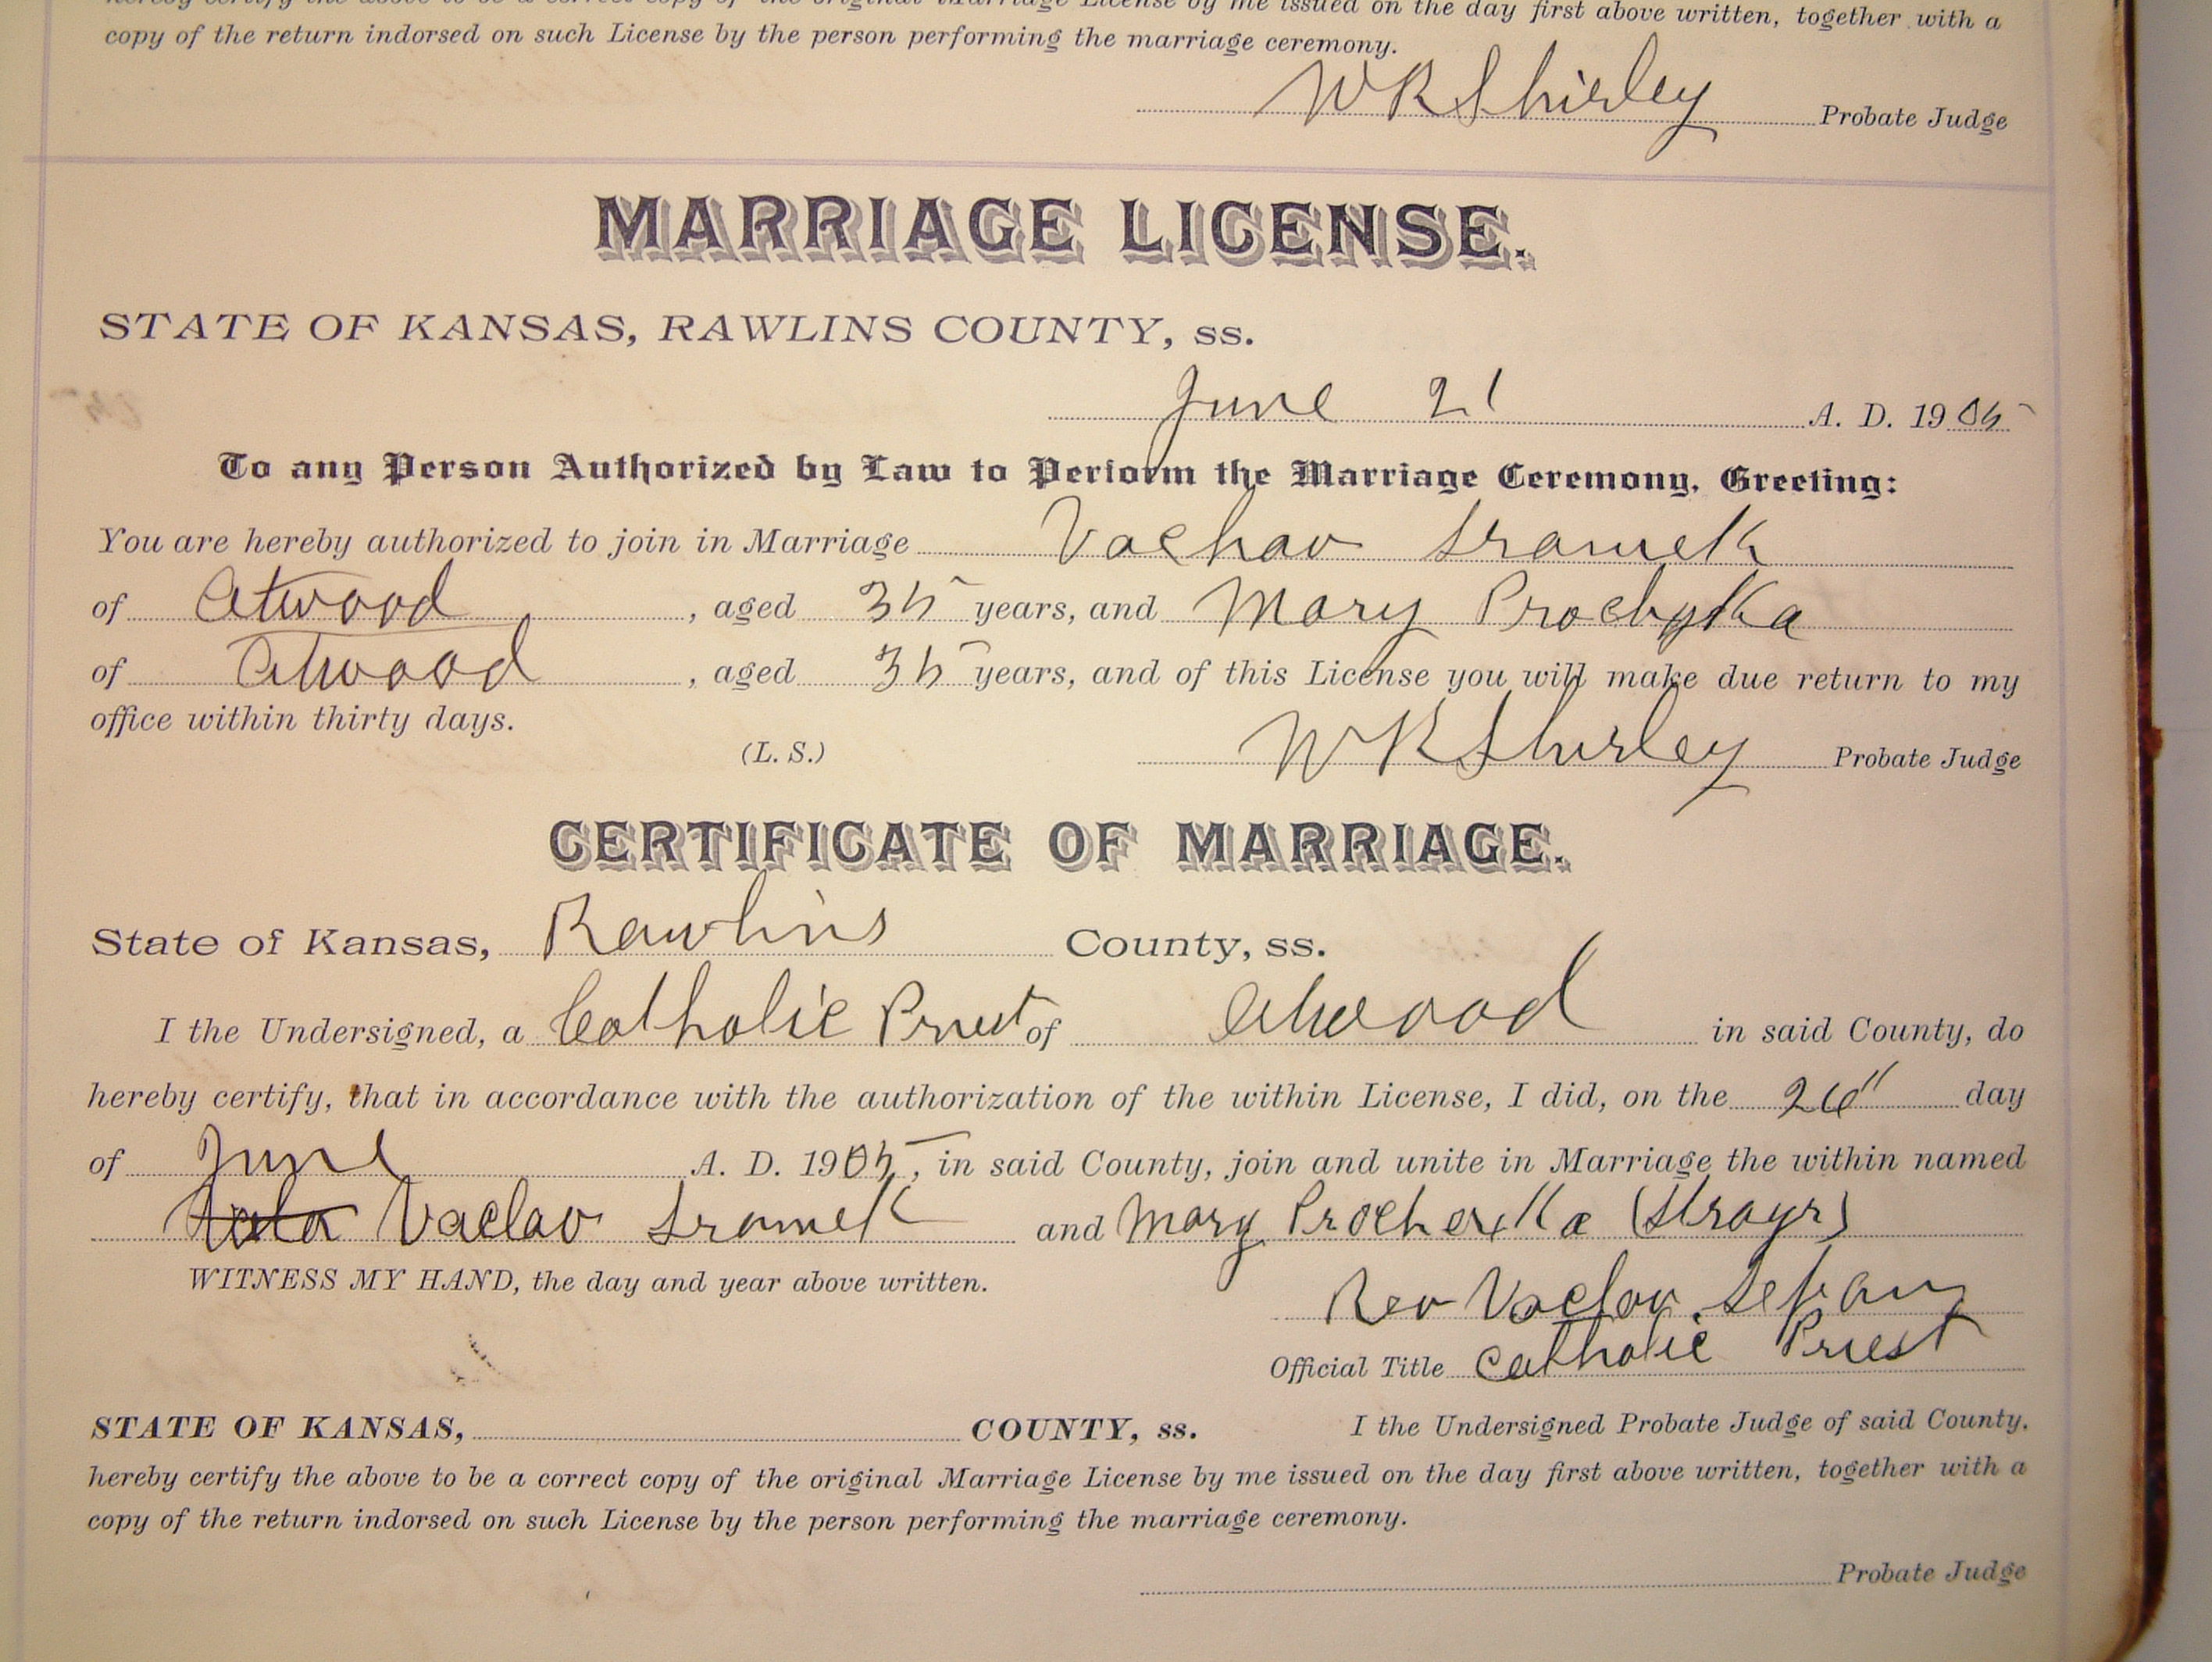 hereby certify the above to be a correct copy of the original Marriage License by me issued on the day first above written, together with a
copy of the return indorsed on such License by the person performing the marriage ceremony.
W R Shirley Probate Judge
MARRIAGE LICENSE.
STATE OF KANSAS, RAWLINS COUNTY, ss.
June 21 A. D. 1905
To any Person Authorized by Law to Perform the Marriage Ceremony, Greeting:
You are hereby authorized to join in Marriage Vachav Sramek
of Atwood, aged 35 years, and Mary
of Atwood, aged 35 years, and of this License you will make due return to my
office within thirty days.
(L. S.) W R Shirley Probate Judge
CERTIFICATE OF MARRIAGE.
State of Kansas, Rawlins County, ss.
I the Undersigned, a Catholic Priest of Atwood in said County, do
hereby certify, that in accordance with the authorization of the within License, I did, on the 26" day
of June A. D. 1905, in said County, join and unite in Marriage the within named
Vaclav Sramek and Mary
WITNESS MY HAND, the day and year above written.
Rev Vaclav
Official Title Catholic Priest
STATE OF KANSAS, COUNTY, ss. I the Undersigned Probate Judge of said County.
hereby certify the above to be a correct copy of the original Marriage License by me issued on the day first above written, together with a
copy of the return indorsed on such License by the person performing the marriage ceremony.
Probate Judge